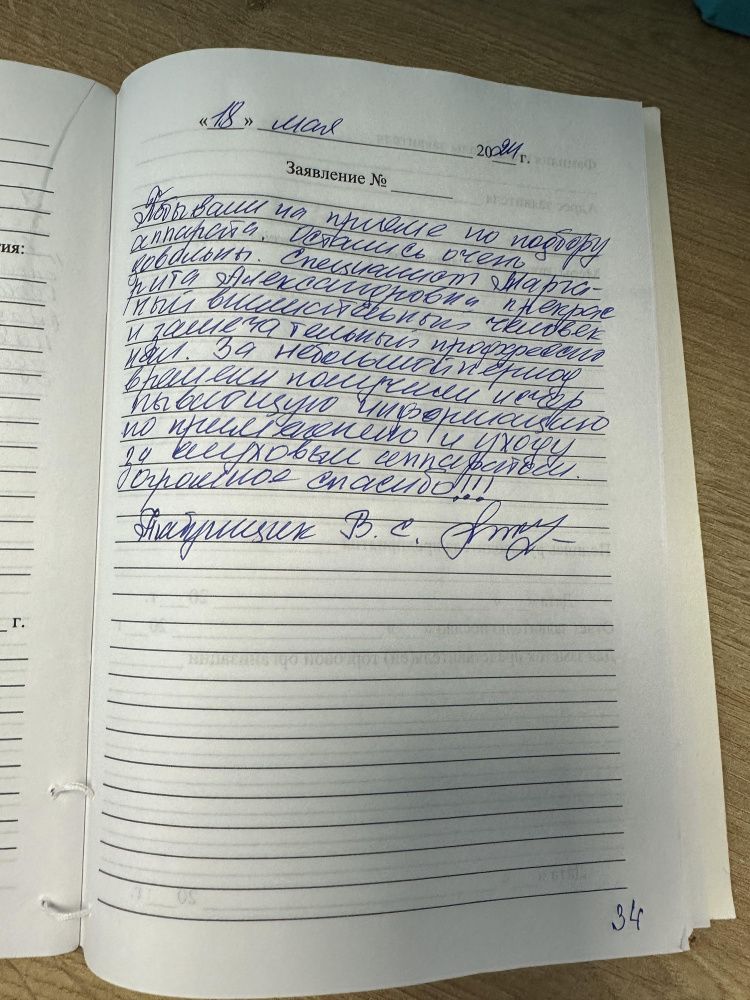 «18» мая 2024 г.
Заявление № ____
Побывали на приёме по подбору
аппарата. Остались очень
довольны. Специалист Марга-
рита Александровна прекрас
ный внимательный человек
и замечательный профессио
нал. За небольшой период
времени получили исчер
пывающую информацию
по применению и уходу
за слуховым аппаратом.
Огромное спасибо!!!
В. С.
34
тия:
г.